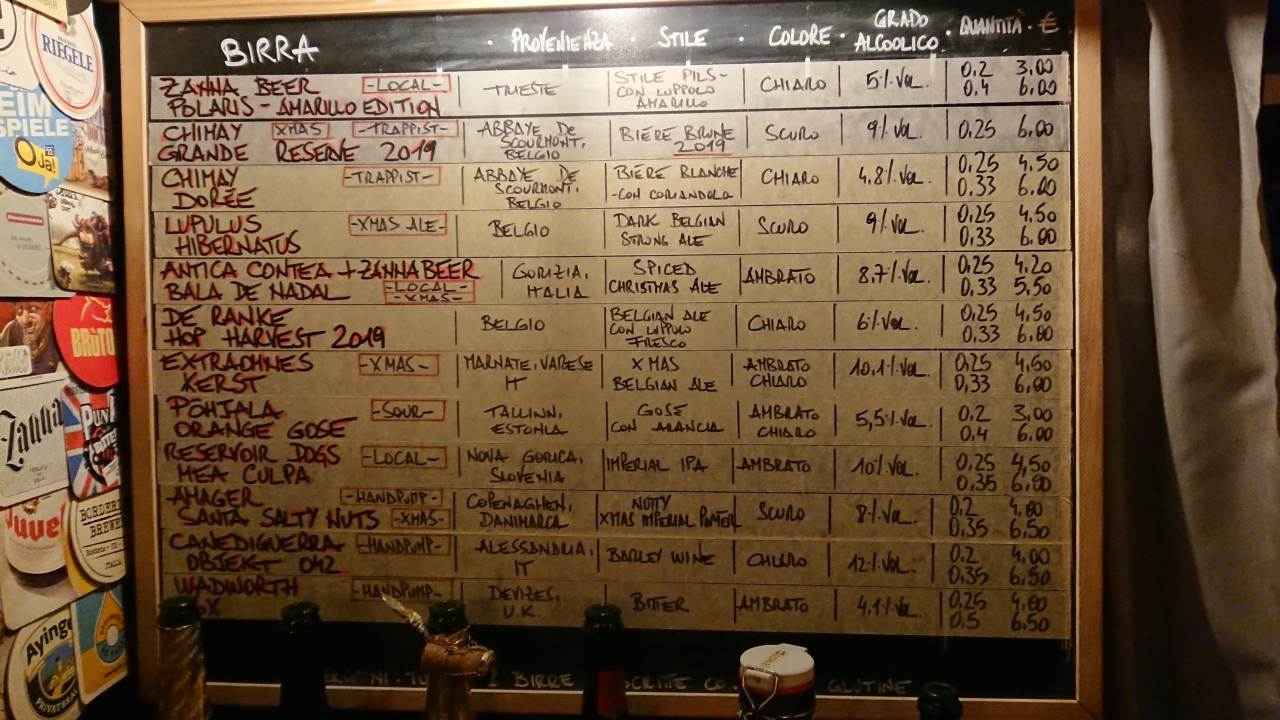 BIRRA · PROVENIENZA · STILE · COLORE · GRADO ALCOOLICO · QUANTITÀ · €
ZANNA BEER -LOCAL- TRIESTE STILE PILS- CHIARO 5% VOL 0.2 3,00
POLARIS - AMARILLO EDITION CON LUPPOLO AMARILLO 0.4 6,00
CHIMAY XMAS -TRAPPIST- ABBAYE DE SCOURMONT, BELGIO BIÈRE BRUNE 2019 SCURO 9% VOL. 0,25 6,00
GRANDE RESERVE 2019
CHIMAY -TRAPPIST- ABBAYE DE SCOURMONT, BELGIO BIÈRE BLANCHE CHIARO 4,8% VOL. 0,25 4,50
DORÉE -CON CORIANDOLO 0,33 6,00
LUPULUS -XMAS ALE- BELGIO DARK BELGIAN SCURO 9% VOL. 0,25 4,50
HIBERNATUS STRONG ALE 0,33 6,00
ANTICA CONTEA + ZANNA BEER GORIZIA, SPICED AMBRATO 8.7% VOL. 0,25 4,20
BALA DE NADAL -LOCAL- -XMAS- ITALIA CHRISTMAS ALE 0,33 5,50
DE RANKE BELGIO BELGIAN ALE CHIARO 6% VOL. 0,25 4,50
HOP HARVEST 2019 CON LUPPOLO FRESCO 0,33 6,00
EXTRAOMNES -XMAS- MARNATE, VARESE XMAS AMBRATO 10,1% VOL. 0,25 4,50
KERST IT BELGIAN ALE CHIARO 0,33 6,00
PÕHJALA -SOUR- TALLINN, GOSE AMBRATO 5,5% VOL. 0.2 3,00
ORANGE GOSE ESTONIA CON ARANCIA CHIARO 0,4 6,00
RESERVOIR DOGS -LOCAL- NOVA GORICA, IMPERIAL IPA AMBRATO 10% VOL. 0,25 4,50
MEA CULPA SLOVENIA 0,35 6,00
AMAGER -HANDPUMP- COPENAGHEN, NUTTY SCURO 8% VOL. 0.2 4,00
SANTA SALTY NUTS -XMAS- DANIMARCA XMAS IMPERIAL PORTER 0,35 6,50
CANEDIGUERRA -HANDPUMP- ALESSANDRIA, BARLEY WINE CHIARO 12% VOL. 0.2 4,00
OBJEKT 042 IT 0,35 6,50
WADWORTH -HANDPUMP- DEVIZES, BITTER AMBRATO 4,1% VOL. 0,25 4,00
U.K. 0,5 6,50
BIRRE GLUTINE
RIEGELE
EIM
SPIELE
Ja!
BRÙTO
Zanna
PUNK
Duvel
BORDER
BREWE
Ayinge
PRIVATBRAU